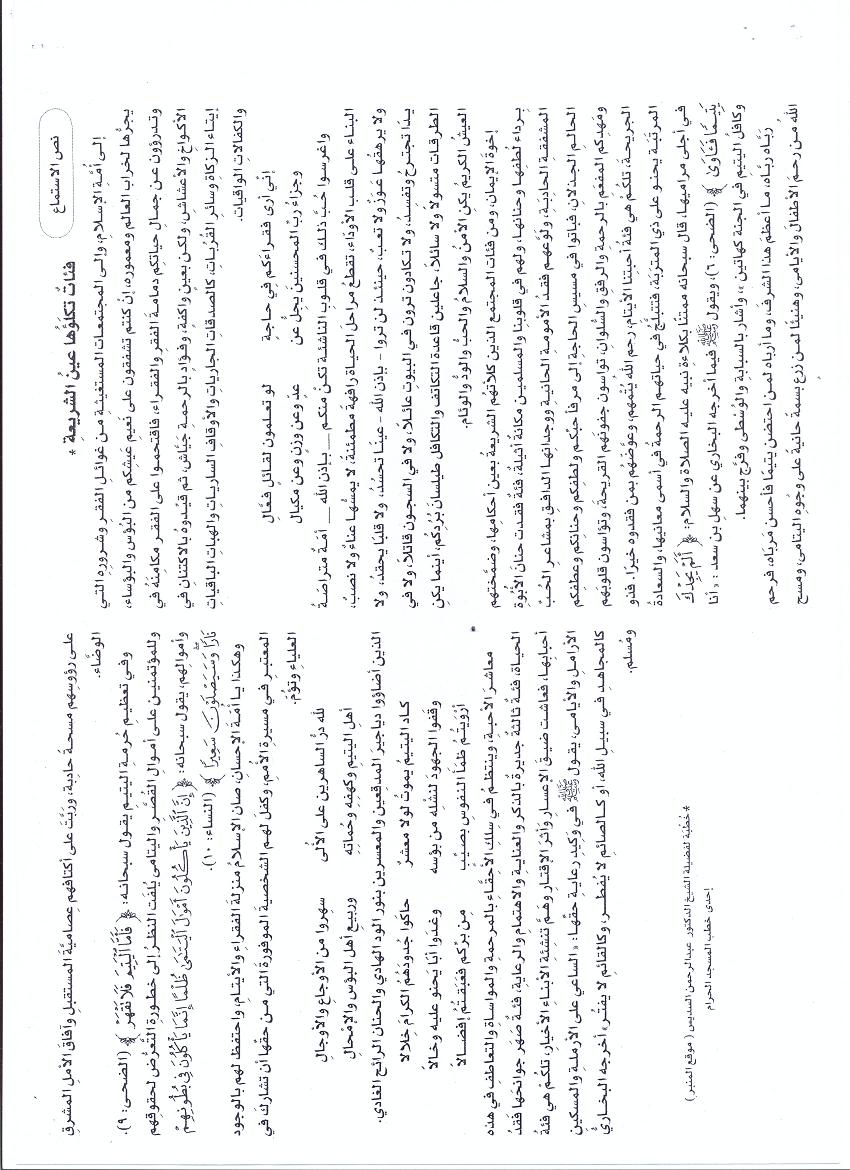 نص الاستماع
فئاتٌ تكلَؤُها عينُ الشريعة *
إلى أمَّةِ الإسلامِ، وإلى المجتمعاتِ المستغيثةِ من غوائلِ الفقرِ وشرورِه التي
يجرُّها لخرابِ العالمِ ومعمورِه، إنْ كنتم تشفقون على نَعيمِ عَيشِكم من البُؤسِ والبؤساءِ،
وتدرؤون عن جمالِ حياتِكم دمامةَ الفقرِ والفقراءِ، فاقتحموا على الفقرِ مكامنَهُ في
الأكواخِ والأعشاشِ، ولكن بعينٍ واكفةٍ، وفؤادٍ بالرحمةِ جَيَّاشٍ، ثم قيِّدوهُ بالاكتنانِ في
إيتاءِ الزكاةِ وسائرِ القُرُباتِ، كالصدقاتِ الجارياتِ والأوقافِ السارياتِ والهباتِ الباقياتِ
والكفالاتِ الواقياتِ.
إنّي أرى فقراءَكم في حاجةٍ لو تعلمون لقائلٍ فعَّالِ
وجزاءُ ربِّ المحسنينَ يجلُّ عن عدٍّ وعن وزنٍ وعن مكيالِ
واغرسوا حُبَّ ذلك في قلوبِ الناشئةِ تكنْ منكم __ بإذن الله __ أمَةٌ متراصَةُ
البناءِ على قلبِ الأوداءِ، تقطعُ مراحلَ الحياةِ رافهةً مطمئنةً، لا يمسُّها عناءٌ ولا نصبٌ،
ولا يرهقُها عَوَزٌ ولا تعبٌ، حينئذٍ لن تروا - بإذن الله - عينًا تحسُدُ، ولا قلبًا يحقدُ، ولا
يدًا تجترحُ وتفسدُ، ولا تكادون ترون في البيوت عائلاً، ولا في السجون قاتلاً، ولا في
الطرقات متسولاً ولا سائلاً، جاعلين قاعدةَ التكاتفِ والتكافلِ طيلسانَ بُرْدِكم، أينما يكنِ
العيشُ الكريمُ يكنِ الأمنُ والسلامُ والحبُّ والودُّ والوئامُ.
إخوةَ الإيمانِ، ومن فئاتِ المجتمعِ الذين كلأتْهُم الشريعةُ بعينِ أحكامِها، وضمَّختْهم
بِرداءِ لُطفِها وحنانِها، ولهم في قلوبِنا والمسلمينَ مكانةٌ أثيلةٌ، فئةٌ فقدتْ حنانَ الأبُوَّةِ
المشفقةِ الحادبةِ، ولَوَّعَهم فقدُ الأمومةِ الحانيةِ ووجدانِها الدافقِ بمشاعرِ الحُبِّ
الحالمِ الجذلانِ، فباتوا في مسيسِ الحاجةِ إلى مرفأِ حبِّكم ولطفِكم وحنانِكم وعطفِكم
ومهدِكم المفعَمِ بالرحمةِ والرفقِ والسُّلوانِ، تواسون جفونَهم القريحةَ، وتؤاسون قلوبَهم
الجريحةَ، تلكمْ هي فئةُ أحبتِنا الأيتامِ، رحم الله يُتْمَهم، وعوّضهُم بمن فقدوه خيرًا. فذو
المرتبةِ يحنو على ذي المتربةِ، فتنبلجُ في حياتِهم الرحمةُ في أسمى معانيها، والسعادةُ
في أجلى مراميها، قال سبحانه ممتنًا بكلاءةِ نبيه عليه الصلاة والسلام: ﴿ أَلَمْ يَجِدْكَ
يَتِيمًا فَـَٔاوَىٰ ﴾ (الضحى: ٦)، ويقول ﷺ فيما أخرجه البخاري عن سهل بن سعد : «أنا
وكافلُ اليتيمِ في الجنةِ كهاتينِ »، وأشار بالسبابةِ والوُسْطى وفرَّج بينهما.
ربَّاه ربَّاه، ما أعظم هذا الشرفَ، وما أرباه لمن احتضن يتيمًا فأحسن مَربَاه، فرحم
اللهُ من رحمَ الأطفالَ والأيامى، وهنيئًا لمن زرع بسمةً حانيةً على وجوهِ اليتامى، ومسحَ
على رؤوسِهم مسحةً حادبةً، وربَّتَ على أكتافِهم عصاميَّةَ المستقبلِ وآفاقَ الأملِ المشرقِ
الوضَّاءِ.
وفي تعظيمِ حُرمةِ اليتيمِ يقول سبحانه: ﴿ فَأَمَّا ٱلْيَتِيمَ فَلَا تَقْهَرْ ﴾ (الضحى: ٩).
وللمؤتمنينَ على أموالِ القصَّرِ واليتامى يُلفت النظرُ إلى خطورةِ التعرُّضِ لحقوقِهم
وأموالِهم، يقول سبحانه: ﴿ إِنَّ ٱلَّذِينَ يَأْكُلُونَ أَمْوَٰلَ ٱلْيَتَٰمَىٰ ظُلْمًا إِنَّمَا يَأْكُلُونَ فِى بُطُونِهِمْ
نَارًا وَسَيَصْلَوْنَ سَعِيرًا ﴾ (النساء: ١٠).
وهكذا يا أمّةَ الإحسانِ، صان الإسلامُ منزلةَ الفقراءِ والأيتامِ، واحتفظ لهم بالوجودِ
المعتبرِ في مسيرةِ الأممِ، وكفَلَ لهم الشخصيةَ الموفورةَ التي من حقها أن تشاركَ في
العلياءِ وتؤمّ.
لله درُّ الساهرين على الأُلى سهروا من الأوجاعِ والأوجالِ
أهلِ اليتيمِ وكهفِه وحُماتِه وربيعِ أهلِ البؤسِ والإمْحالِ
الذين أضاؤوا دياجيرَ المدقعين والمعسرين بنورِ الودِّ الهادي والحنانِ الرائحِ الغادي.
كاد اليتيمُ يموتُ لولا معشرٌ حاكوا جُدودَهُمُ الكرامَ خِلالا
وقفوا الجهودَ لنشلِه من بؤسِه وغدوا أبًا يَحنو عليه وخالا
أرْوَيتُمُ ظمأَ النفوسِ بصيِّبٍ مِن بِرّكم فغبَقتُمُ إفضالا
معاشرَ الأحبةِ، وينتظمُ في سِلكِ الأحقَّاءِ بالمرحمةِ والمواساةِ والتعاطفِ في هذه
الحياةِ، فئةٌ ثالثةٌ جديرةٌ بالذكرِ والعنايةِ والاهتمامِ والرعايةِ، فئةٌ صَهَر جوانحَها فقدُ
أحبابِها، فعاشت ضيقَ الإعسارِ وأثرَ الإقتارِ وهَمَّ تنشئةِ الأبناءِ الأخيارِ، تلكمُ هي فئةُ
الأراملِ والأيامى، يقول ﷺ في وكيدِ رعايةِ حقِّها: «الساعي على الأرملةِ والمسكينِ
كالمجاهدِ في سبيلِ اللهِ، أو كالصائمِ لا يفطر، وكالقائمِ لا يفتر» أخرجه البخاريُّ
ومُسلم.
*خُطْبَة لفضيلة الشيخ الدكتور عبدالرحمن السديس ( موقع المنبر )
إحدى خطب المسجد الحرام